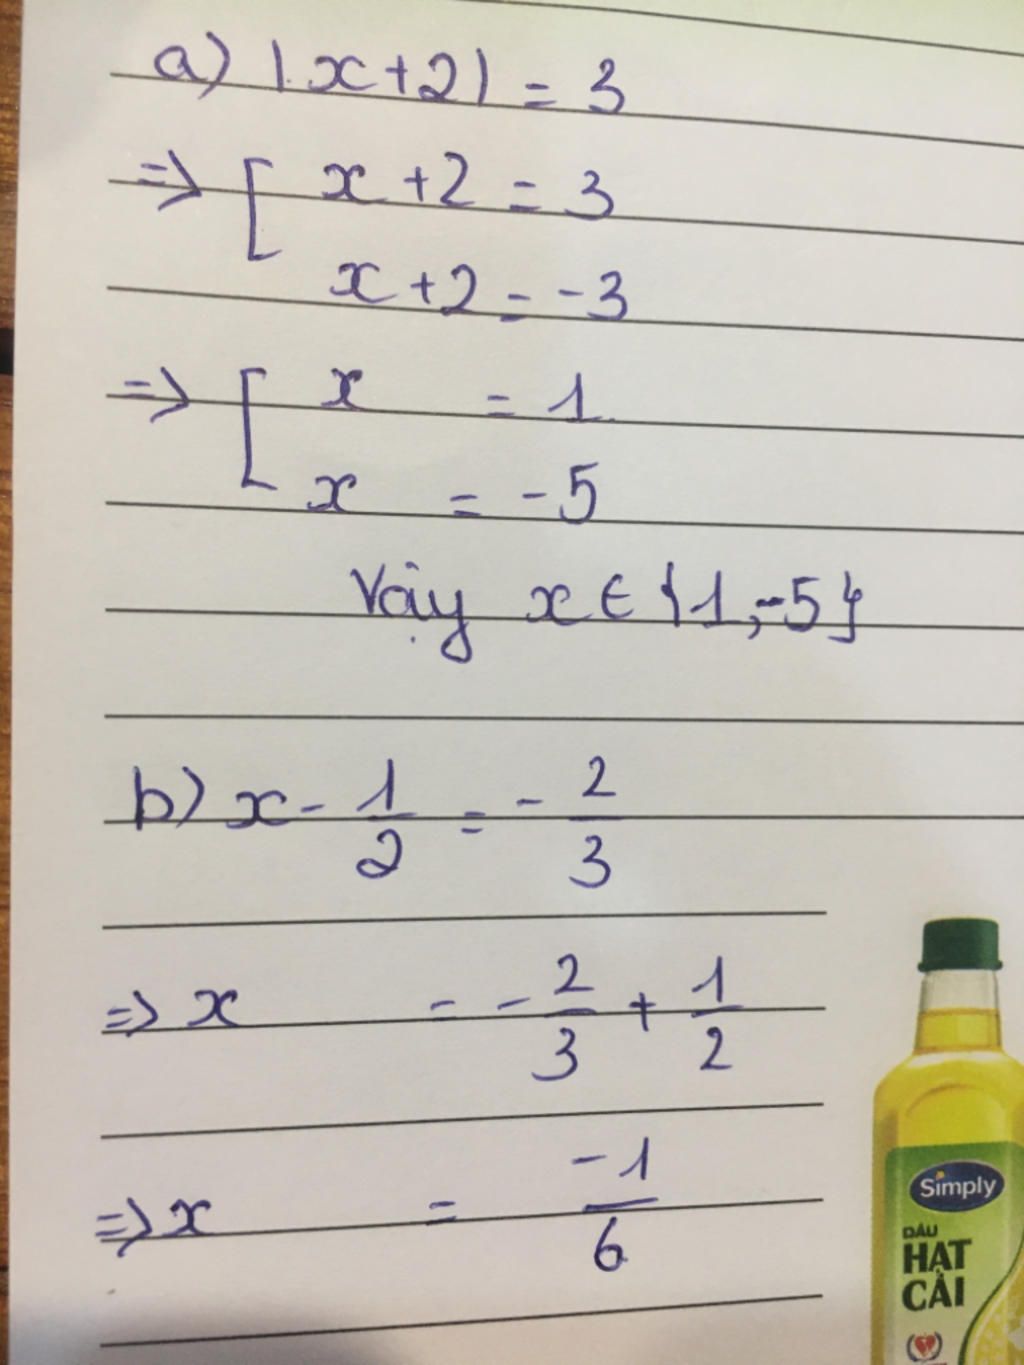 a) |x+2| = 3
=> [ x+2 = 3
x+2 = -3
=> [ x = 1
x = -5
Vậy x ∈ {1,-5}
b) x - 1/2 = - 2/3
=> x = - 2/3 + 1/2
=> x = -1/6
Simply
DẦU
HẠT
CẢI